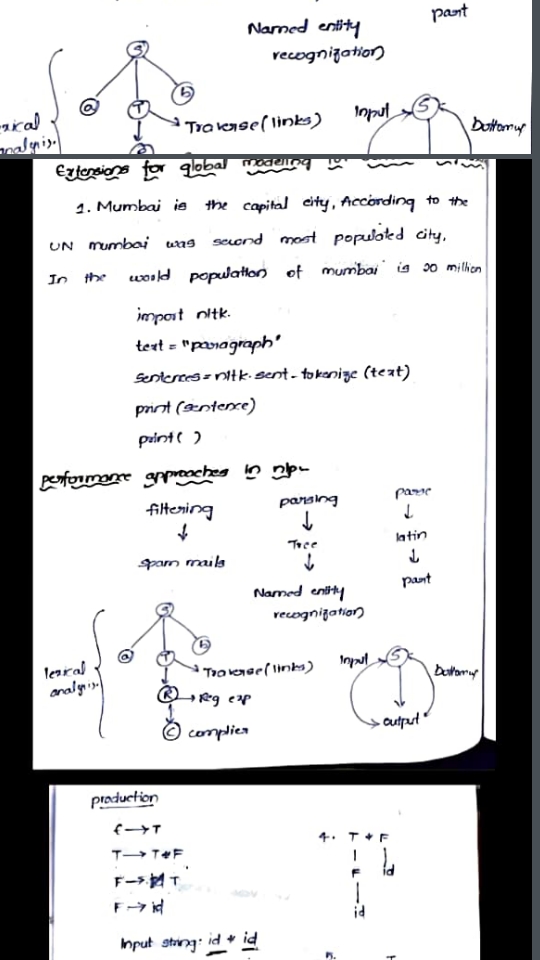 part
Named entity
recognization
S
a T b
Traverse(links)
Input S
Bottomup
Extensions for global modeling for
1. Mumbai is the capital city, According to the
UN mumbai was second most populated city,
In the world population of mumbai is 20 million
import nltk.
text = "paragraph"
sentences = nltk.sent-tokenize (text)
print (sentence)
print( )
performance approaches in nlp-
filtering parsing parse
Tree latin
spam mails part
Named entity
recognization
S
a T b
lexical
analysis.
Traverse(links)
R → Reg exp
C complier
Input S Bottomup
output
production
E → T
T → T*F
F → id T
F → id
4. T * F
F id
id
Input string: id * id